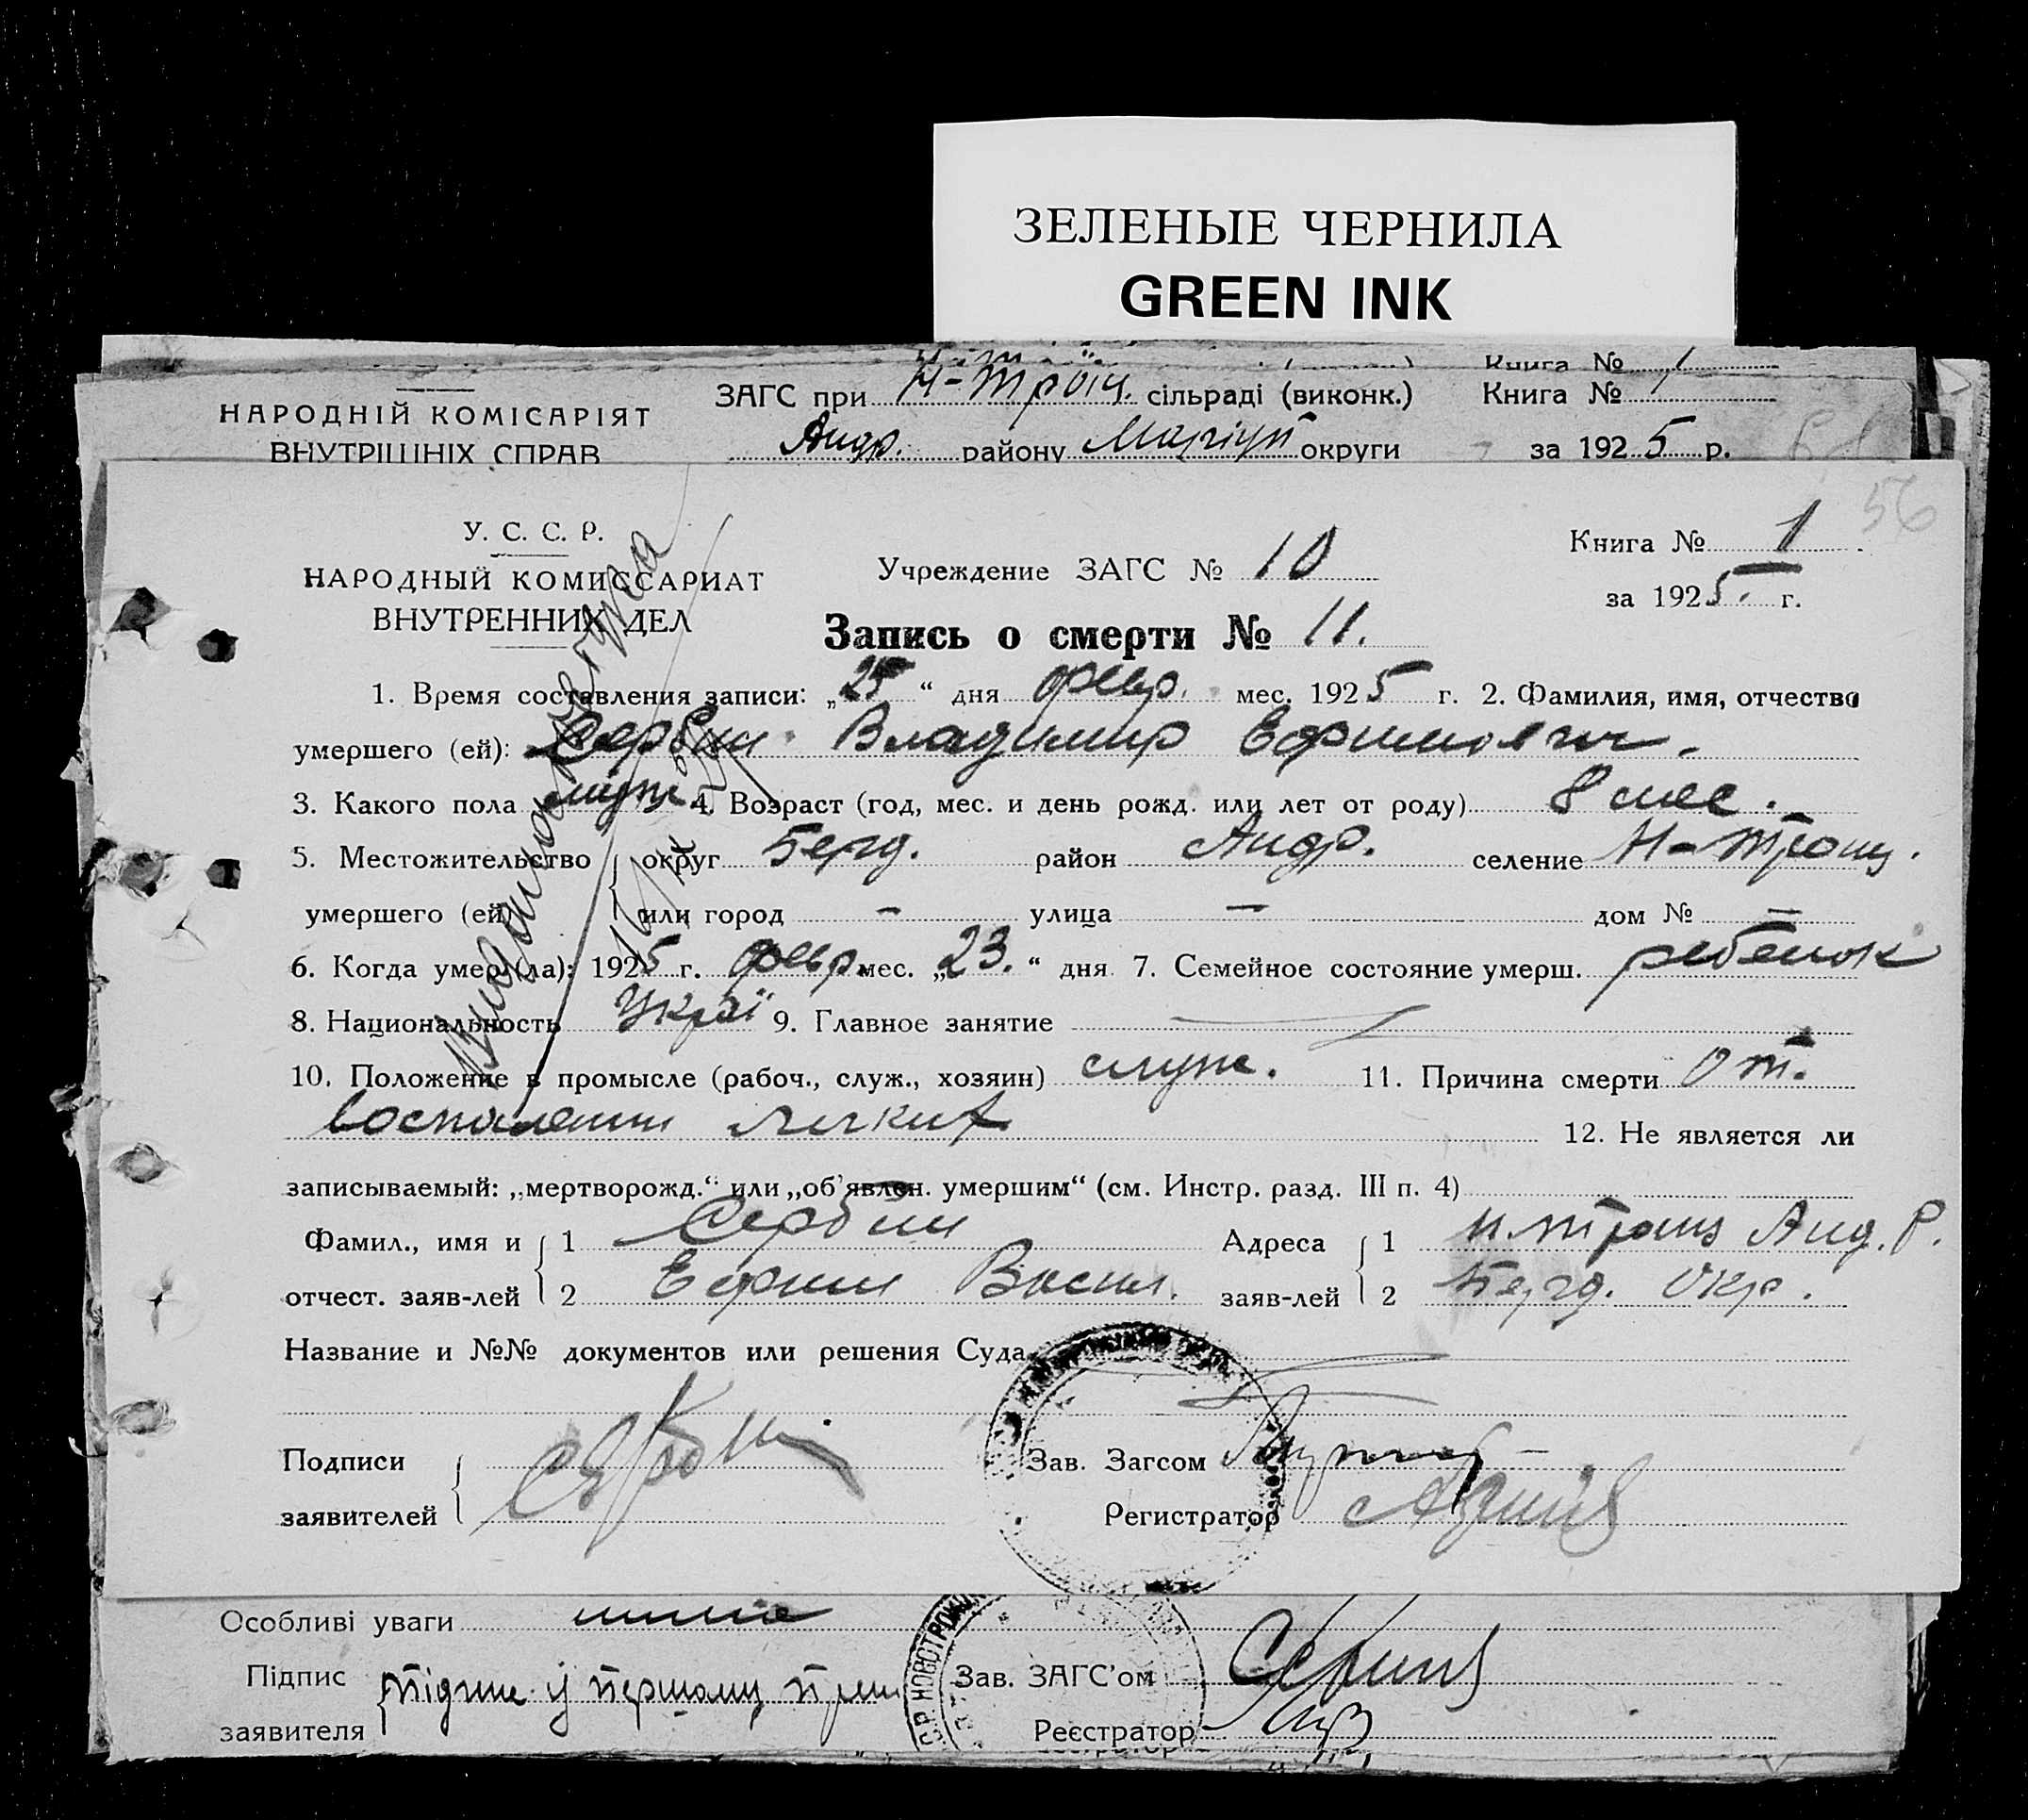 ЗЕЛЕНЫЕ ЧЕРНИЛА
GREEN INK
Книга № 1
НАРОДНІЙ КОМІСАРІЯТ
ВНУТРІШНІХ СПРАВ
ЗАГС при Н-Троїц. сільраді (виконк.) Книга № 1
Андр. району Маріуп округи за 1925 р.
56
У. С. С. Р.
НАРОДНЫЙ КОМИССАРИАТ
ВНУТРЕННИХ ДЕЛ
Учреждение ЗАГС № 10
Книга № 1
за 1925. г.
Запись о смерти № 11.
1. Время составления записи: „25“ дня февр. мес. 1925 г. 2. Фамилия, имя, отчество
умершего (ей): Сербин Владимир Ефимович.
3. Какого пола муж. 4. Возраст (год, мес. и день рожд. или лет от роду) 8 мес.
5. Местожительство округ Берд. район Андр. селение Н-Троиц.
умершего (ей) или город – улица – дом № –
6. Когда умер (ла): 1925 г. февр. мес. „23.“ дня 7. Семейное состояние умерш. ребенок
8. Национальность Украї 9. Главное занятие
10. Положение в промысле (рабоч., служ., хозяин) служ. 11. Причина смерти от.
воспаления легких 12. Не является ли
записываемый: „мертворожд.“ или „об'явлен. умершим“ (см. Инстр. разд. III п. 4)
Фамил., имя и 1 Сербин Адреса 1 Н.Троиц Анд. Р.
отчест. заяв-лей 2 Ефим Васил. заяв-лей 2 Берд. Окр.
Название и №№ документов или решения Суда
Подписи
заявителей
Зав. Загсом
Регистратор
Особливі уваги
Підпис
заявителя
Підпис у першому прим
Зав. ЗАГС'ом
Реєстратор